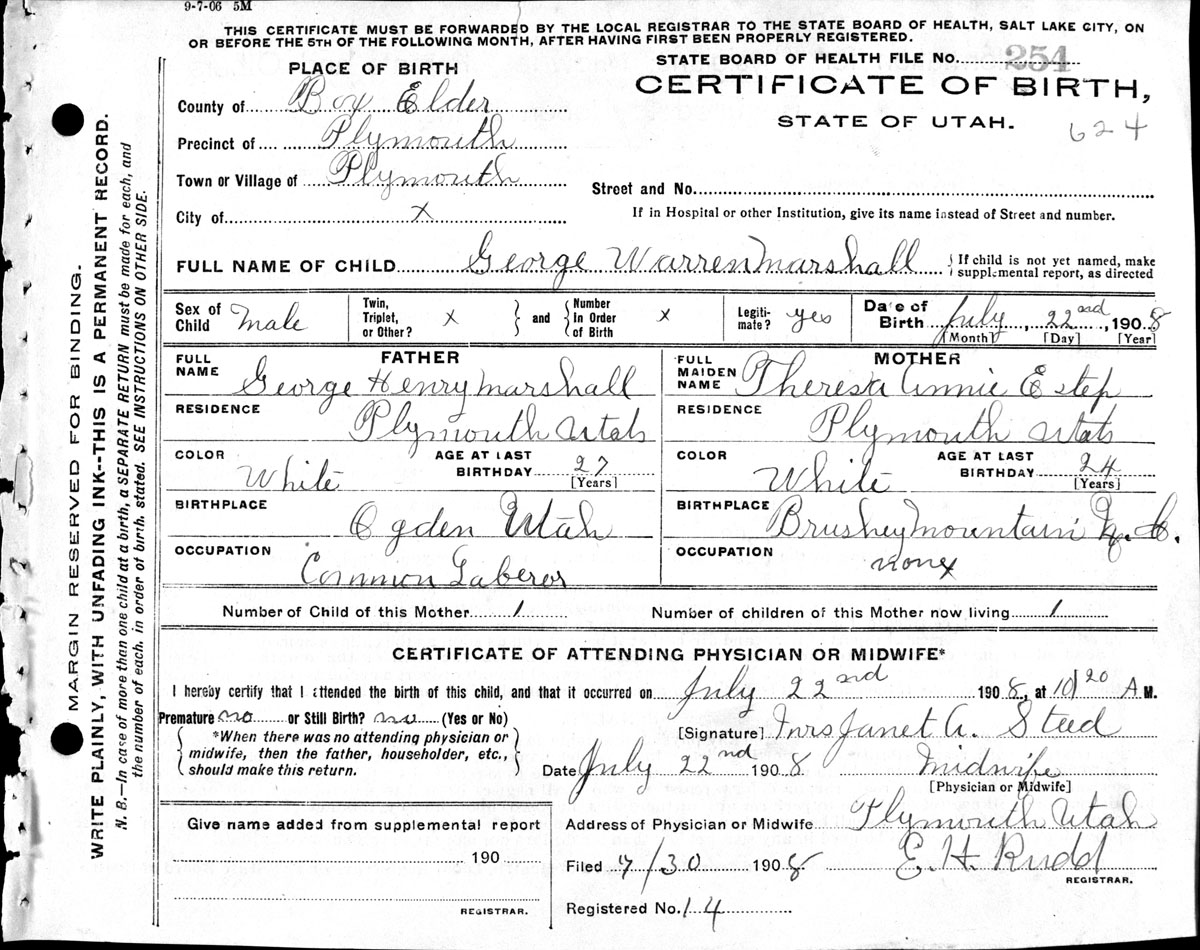 9-7-06 5M
THIS CERTIFICATE MUST BE FORWARDED BY THE LOCAL REGISTRAR TO THE STATE BOARD OF HEALTH, SALT LAKE CITY, ON
OR BEFORE THE 5TH OF THE FOLLOWING MONTH, AFTER HAVING FIRST BEEN PROPERLY REGISTERED.
STATE BOARD OF HEALTH FILE No. 254
CERTIFICATE OF BIRTH,
STATE OF UTAH.
624
PLACE OF BIRTH
County of Box Elder
Precinct of Plymouth
Town or Village of Plymouth
City of X
Street and No.
If in Hospital or other Institution, give its name instead of Street and number.
FULL NAME OF CHILD George Warren Marshall { If child is not yet named, make
supplemental report, as directed
Sex of Child Male
Twin, Triplet, or Other? X } and { Number In Order of Birth X
Legiti-mate? yes
Date of Birth July, 22nd, 1908
[Month] [Day] [Year]
FATHER
FULL NAME George Henry Marshall
RESIDENCE Plymouth Utah
COLOR White AGE AT LAST BIRTHDAY 27
[Years]
BIRTHPLACE Ogden Utah
OCCUPATION Common Laberer
MOTHER
FULL MAIDEN NAME Theresa Annie Estep
RESIDENCE Plymouth Utah
COLOR White AGE AT LAST BIRTHDAY 24
[Years]
BIRTHPLACE Brushey Mountain N. C.
OCCUPATION none
Number of Child of this Mother 1 Number of children of this Mother now living 1
CERTIFICATE OF ATTENDING PHYSICIAN OR MIDWIFE*
I hereby certify that I attended the birth of this child, and that it occurred on July 22nd 1908, at 10/20 A M.
Premature no or Still Birth? no (Yes or No)
{ *When there was no attending physician or
midwife, then the father, householder, etc.,
should make this return. }
[Signature] Mrs Janet A. Steed
Date July 22nd 1908 Midwife
[Physician or Midwife]
Give name added from supplemental report
190
REGISTRAR.
Address of Physician or Midwife Plymouth Utah
Filed 7/30 1908 E. H. Rudd
REGISTRAR.
Registered No. 14
MARGIN RESERVED FOR BINDING.
WRITE PLAINLY, WITH UNFADING INK--THIS IS A PERMANENT RECORD.
N. B.—In case of more than one child at a birth, a SEPARATE RETURN must be made for each, and
the number of each, in order of birth, stated. SEE INSTRUCTIONS ON OTHER SIDE.